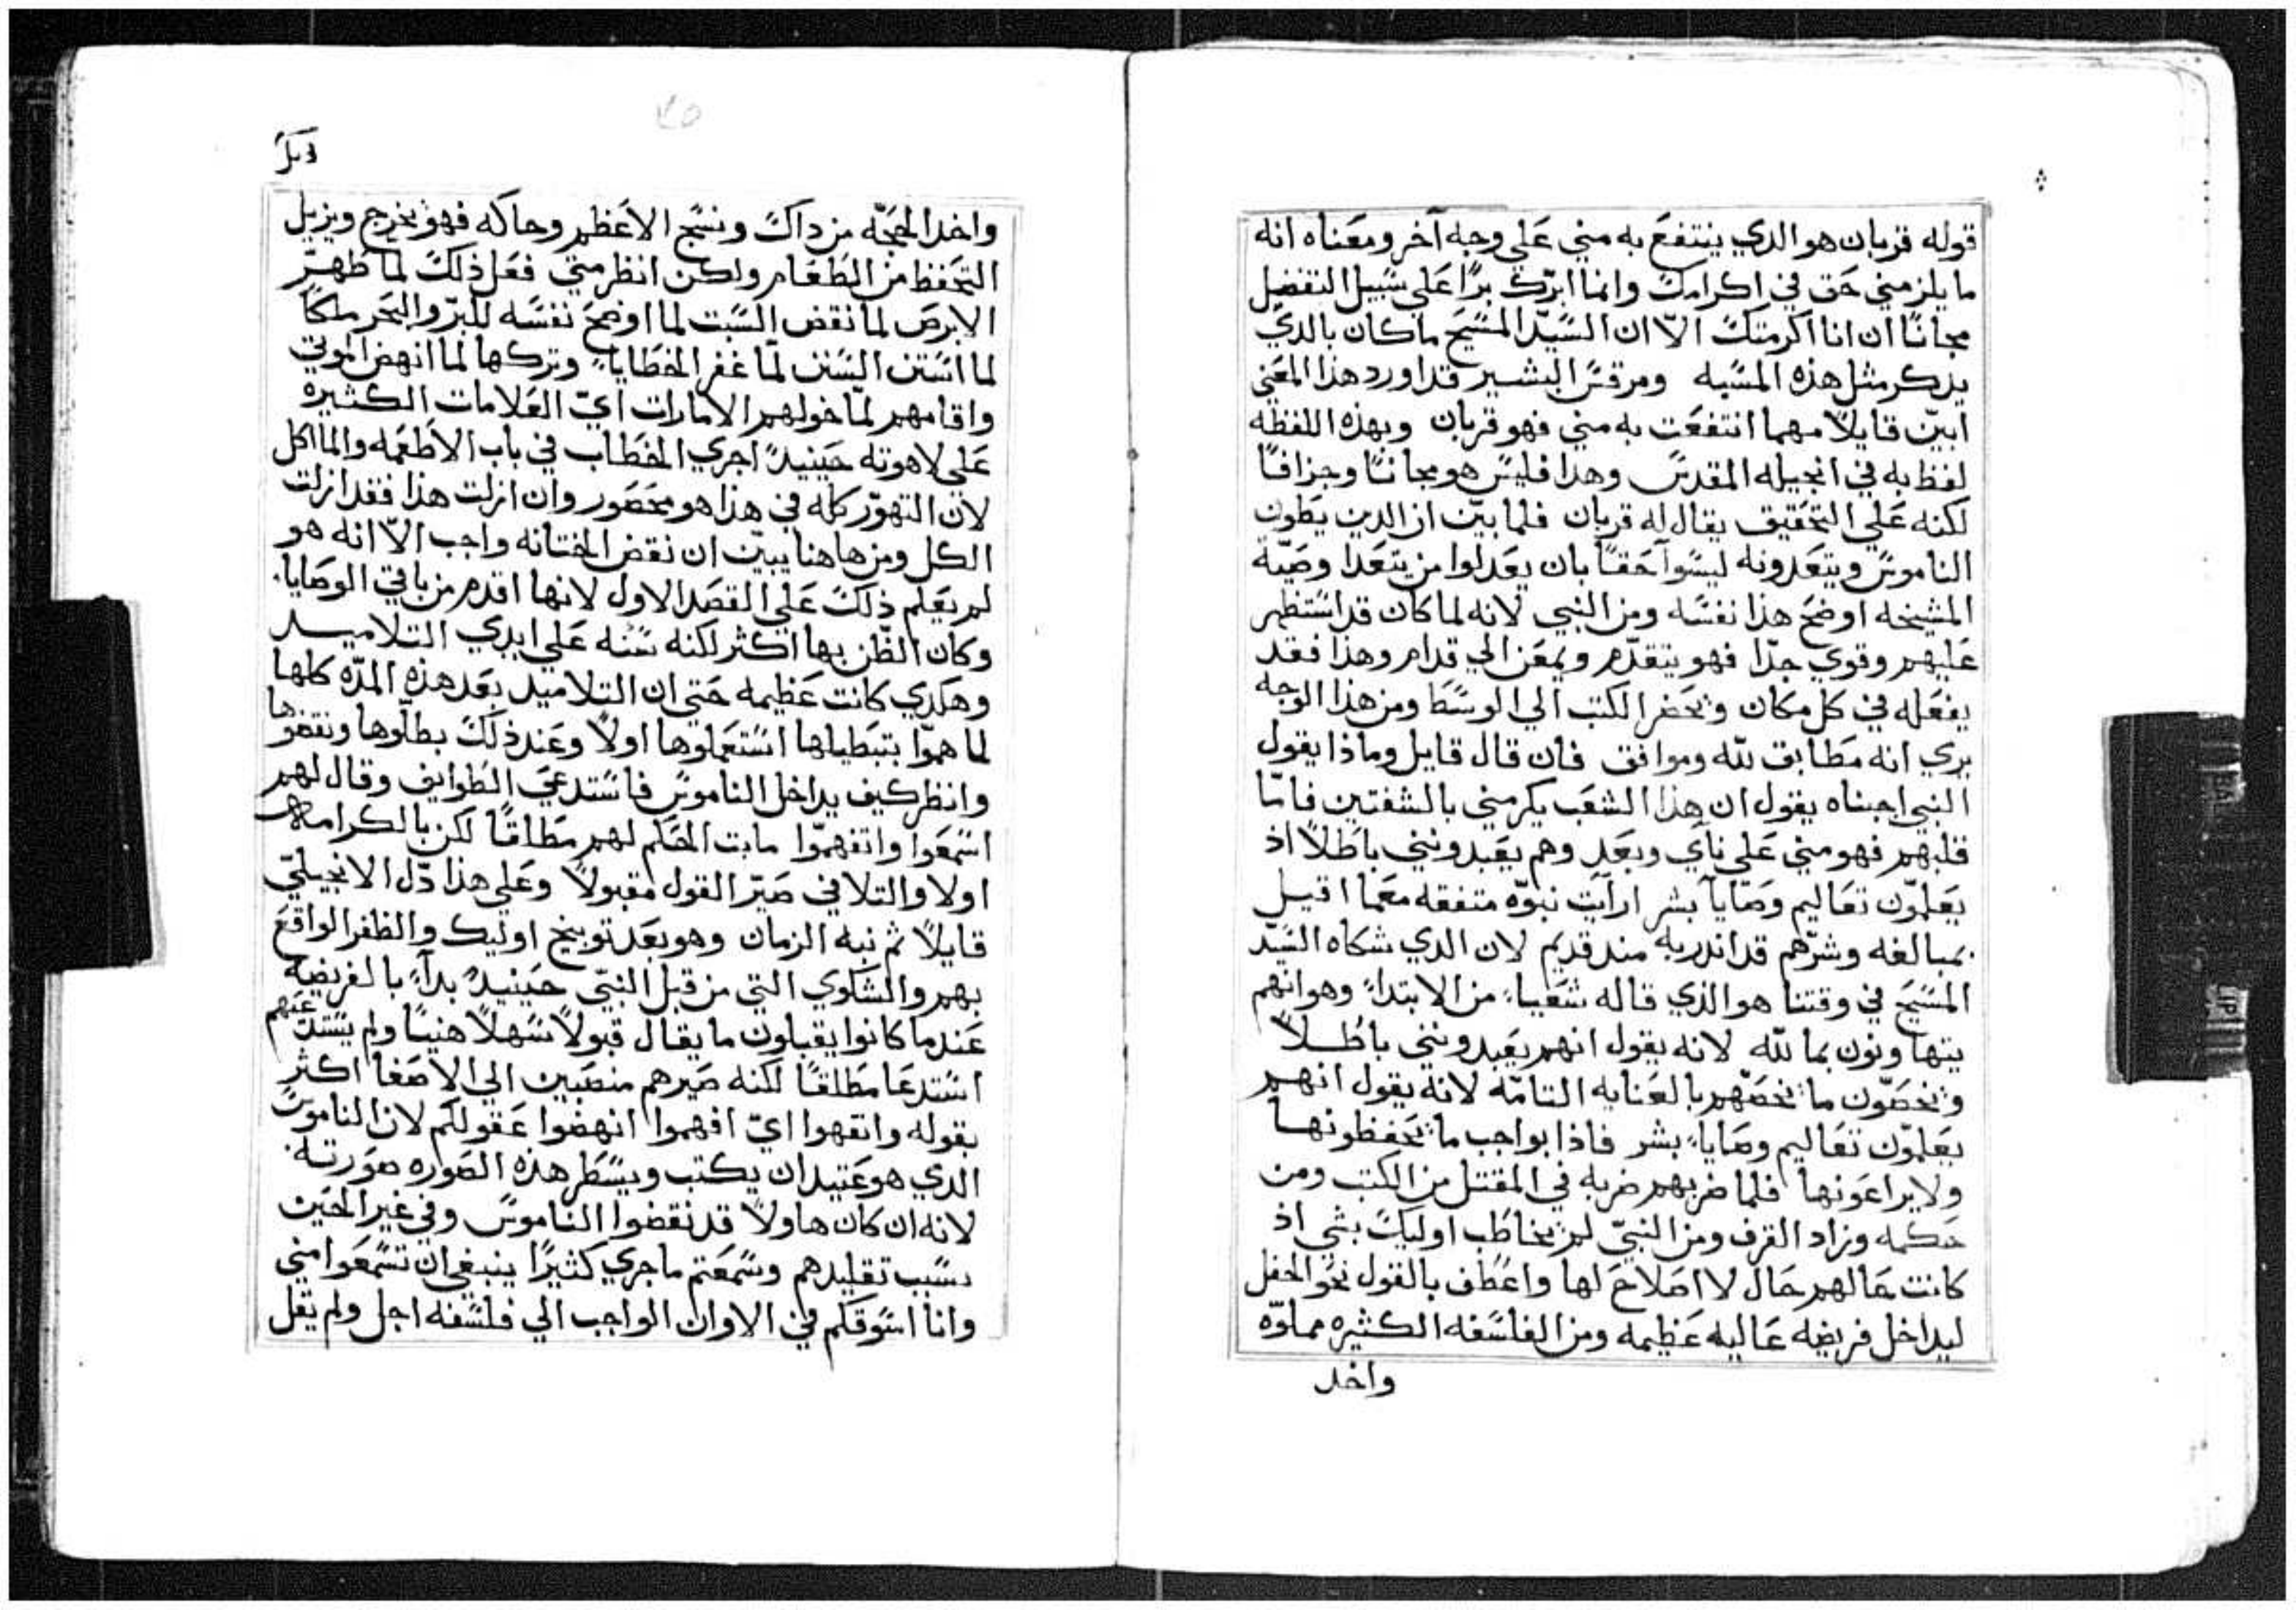 قوله قربان هو الدي ينتفع به مني علي وجه آخر ومعناه انه
ما يلزمني حق في اكرامك وانما ابرّك برًا علي سبيل التفضيل
مجانًا ان انا اكرمتك الاّ ان السيّد المسيح ما كان بالدي
يدكر مثل هذه المسبه ومرقس البشير قد اورد هذا المعني
ابين قايلاً مهما انتفعت به مني فهو قربان وبهذه اللفظه
لفظ به في انجيله المقدس وهدا فليس هو مجانًا وجزافًا
لكنه علي التحقيق يقال له قربان فلما بيّن ان الدين يطون
الناموس ويتعدونه ليسوا حقًا بان يعدلوا من يتعدا وصيّة
المشيخه اوضح هذا نفسه ومن النبي لانه لما كان قد استظهر
عليهم وقوي جدّا فهو يتقدّم ويمعن الي قدام وهذا فقد
يفعله في كل مكان ويحضر الكتب الي الوسط ومن هذا الوجه
يري انه مطابق للّه وموافق فان قال قايل وماذا يقول
النبي اجبناه يقول ان هذا الشعب يكرمني بالشفتين فامّا
قلبهم فهو مني علي ناي وبعد وهم يعبدونني باطلاً اذ
يعلمّون تعاليم وصايا بشر ارايت نبوّه متفقه معما اقيل
بمبالغه وشرّهم قد اندر به مند قديم لان الدي شكاه السيّد
المسيح في وقتنا هو الذي قاله شعياء من الابتداء وهو انهم
يتهاونون بما للّه لانه يقول انهم يعبدونني باطلاً
ويخصّون ما يخصّهم بالعنايه التامّه لانه يقول انهم
يعلمّون تعاليم وصاياء بشر فاذا بواجب ما يحفظونها
ولا يراعونها فلما ضربهم ضربه في المقتل من الكتب ومن
حكمه وزاد القرف ومن النبيّ لم يخاطب اوليك بشي اذ
كانت حالهم حال لا اصلاح لها واعطف بالقول نحو الحفل
ليداخل فريضه عاليه عظيمه ومن الفلسفه الكثيره مملوّه
واخد
واخد الحجّه من داك ونسج الاعظم وحاكه فهو يخرج ويزيل
التحفظ من الطعام ولكن انظر متي فعل ذلك لما طهّر
الابرص لما نقض السبت لما اوضح نفسه للبرّ والبحر ملكًا
لما استن السنن لمّا غفر الخطاياء وتركها لما انهض الموتي
واقامهم لمّا خولهم الامارات ايّ العلامات الكثيره
علي لاهوته حينيدً اجري الخطاب في باب الاطعمه والماكل
لان التهوّد كله في هذا هو محصور وان ازلت هذا فقد ازلت
الكل ومن هاهنا يبيّن ان نقض الختانه واجب الاّ انه هو
لم يعلم ذلك علي القصد الاول لانها اقدم من باقي الوصايا
وكان الظّن بها اكثر لكنه سنه علي ايدي التلاميد
وهكدي كانت عظيمه حتي ان التلاميد بعد هذه المدّه كلها
لما همّوا بتبطيلها استعملوها اولاً وعند ذلك بطلّوها ونقضوها
وانظر كيف يداخل الناموس فاستدعي الطوايف وقال لهم
اسمعوا واتفهمّوا ما بت الحكم لهم مطلقًا لكن بالكرامه
اولا والتلافي صيّر القول مقبولاً وعلي هذا دّل الانجيليّ
قايلاً ثم نبه الزمان وهو بعد توبيخ اوليك والظفر الواقع
بهم والشكاوي التي من قبل النبيّ حينيدً بداً بالفريضه
عندما كانوا يقبلون ما يقال قبولاً سهلاً هنيًا ولم يستدعهم
استدعا مطلقًا لكنه صيرهم منصبين الي الاصغا اكثر
بقوله واتفهوا ايّ افهموا انهضوا عقولكم لان الناموس
الدي هو عتيد ان يكتب ويسطر هذه الصوره صورته
لانه ان كان هاولاً قد نقضوا الناموس وفي غير الحين
بسبب تقليدهم وسمعتم ما جري كثيرًا ينبغي ان تسمعوا مني
وانا اسوقكم في الاوان الواجب الي فلسفه اجل ولم يقل